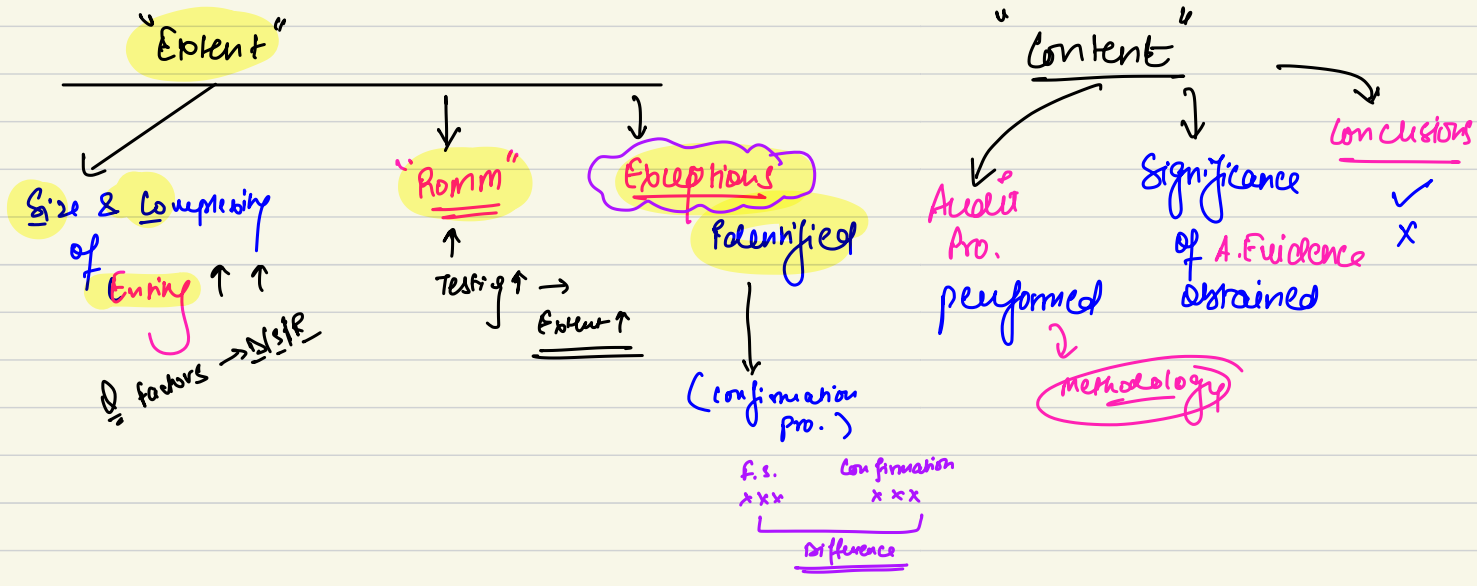 "Extent"
Size & Complexity
of
Entity ↑ ↑
Q factors → N/S/R
"ROMM"
↑
Testing ↑ →
Extent ↑
Exceptions
Identified
(Confirmation
Pro.)
F.S. Confirmation
xxx xxx
Difference
"Content"
Audit
Pro.
performed
Methodology
Significance
of A. Evidence
obtained
Conclusions
✓
x